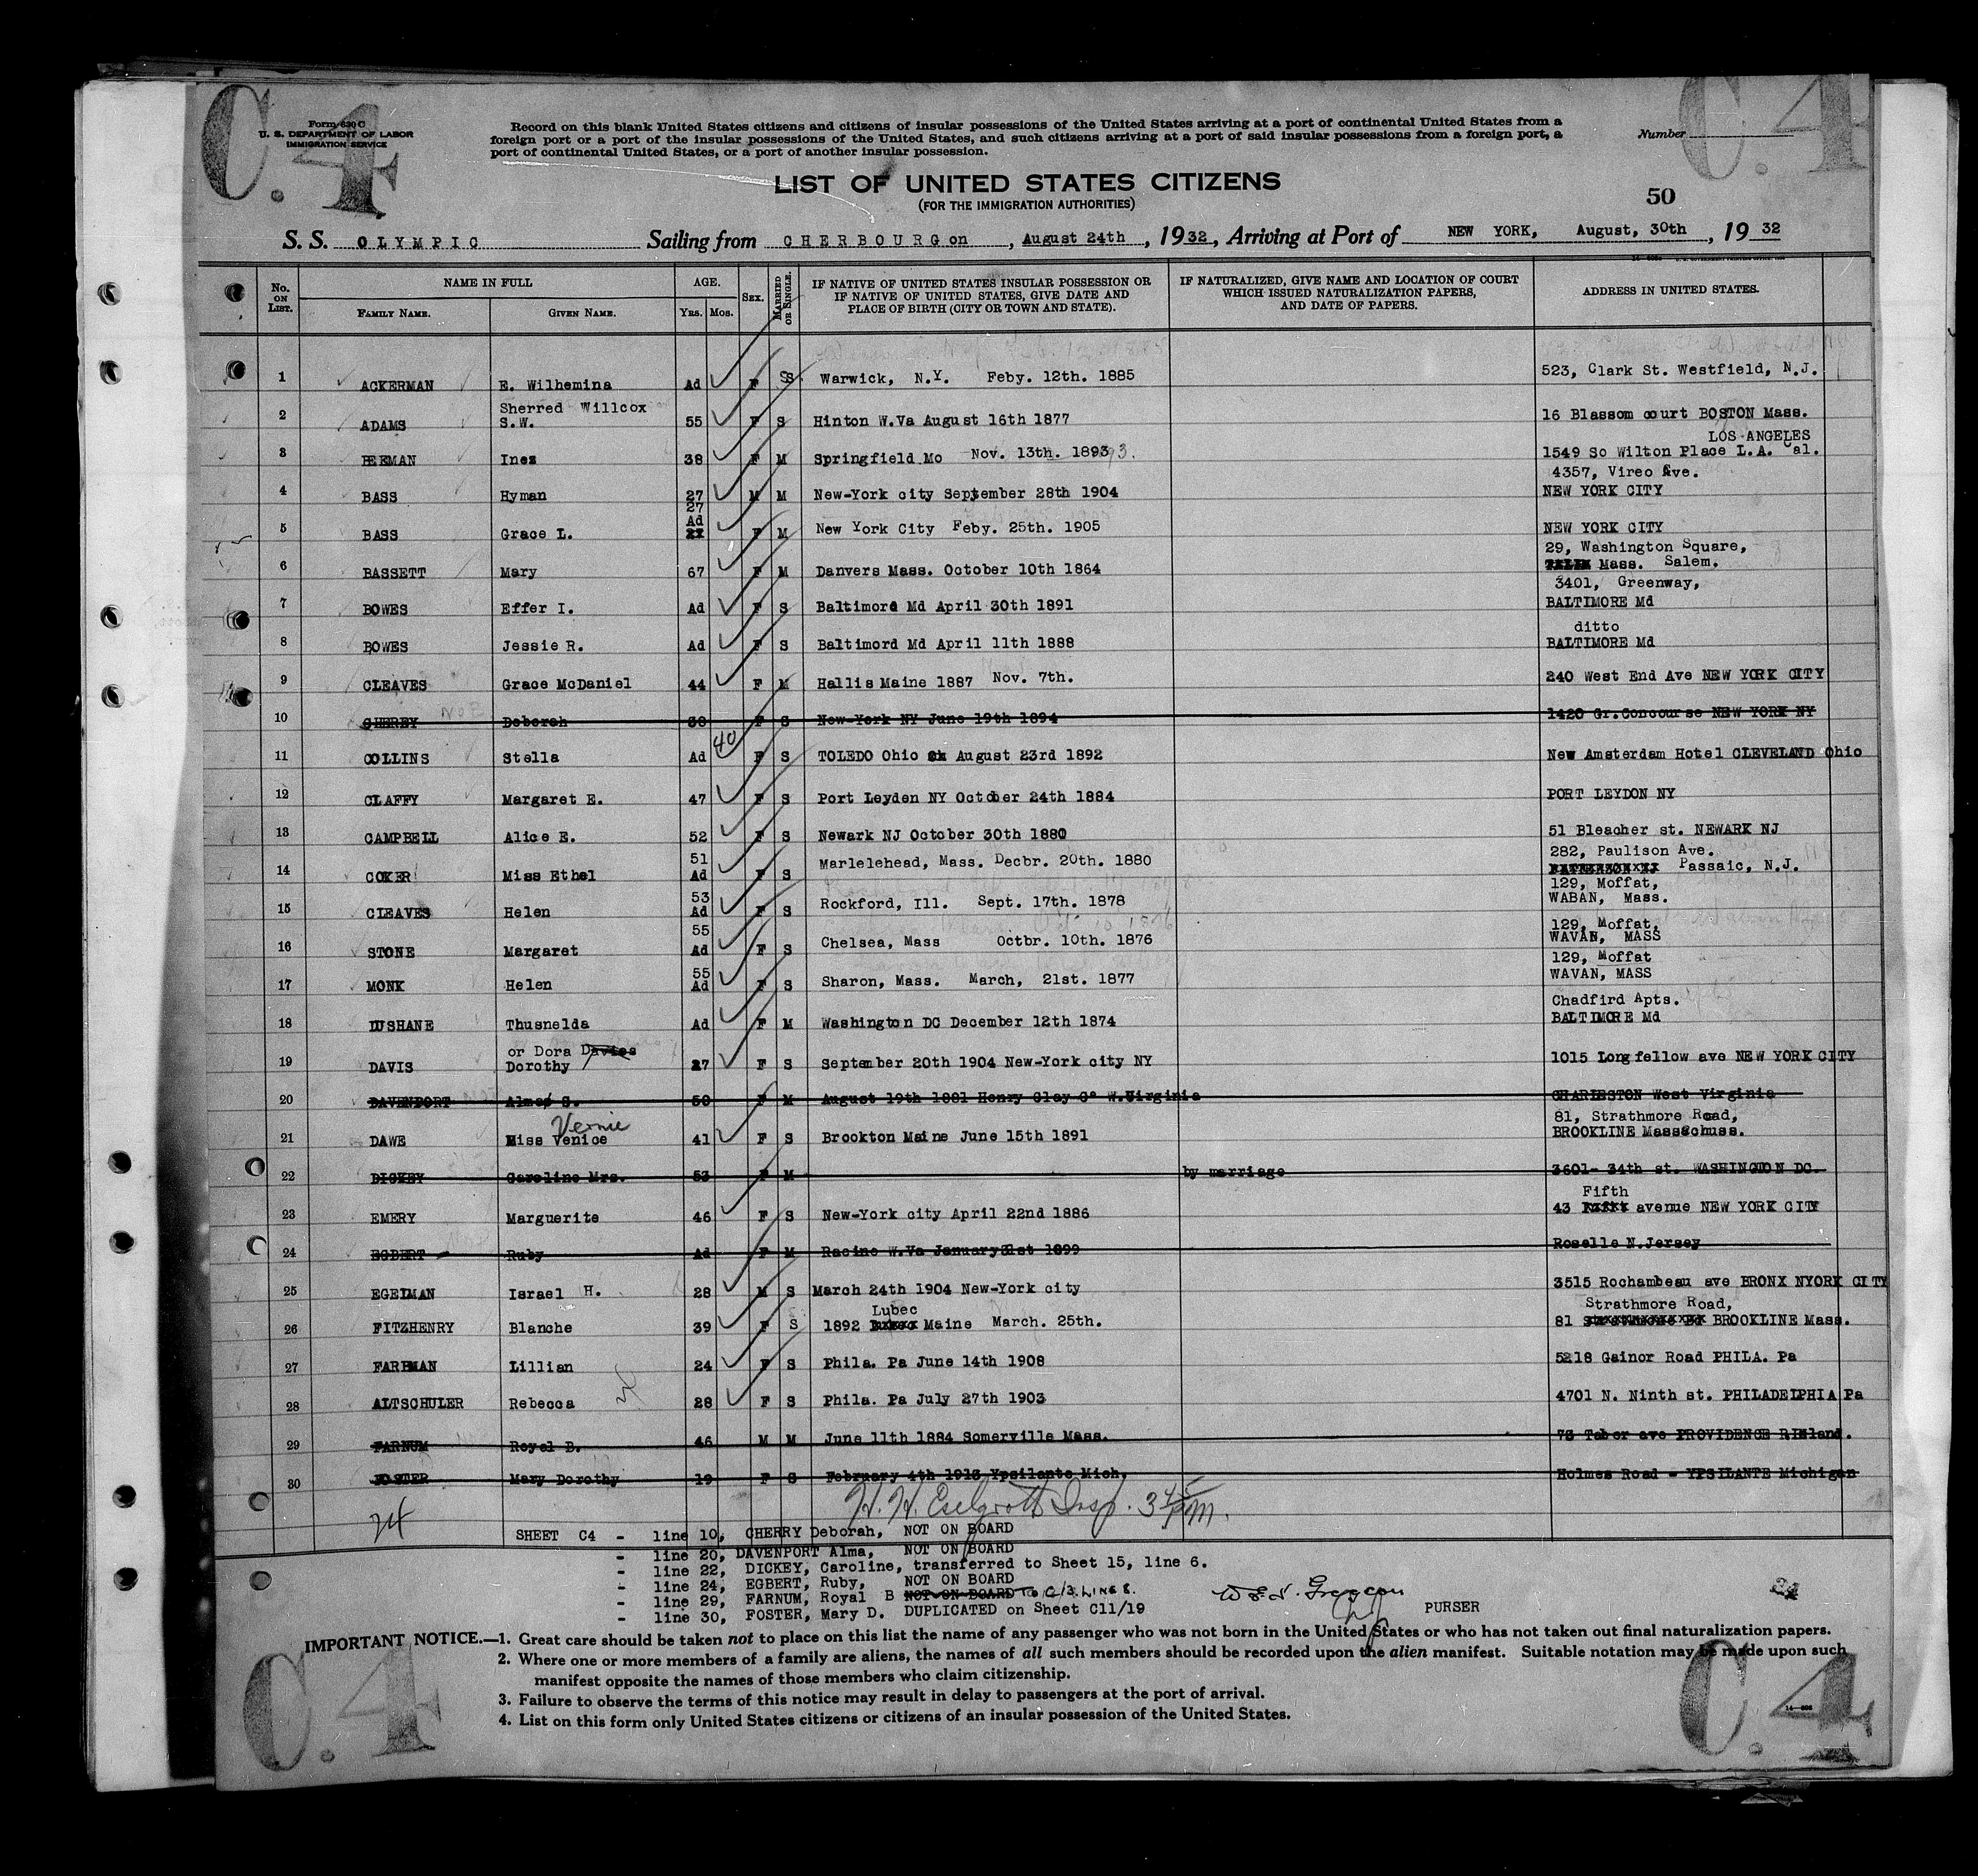 C.4
C.4
Form 630 C
U. S. DEPARTMENT OF LABOR
IMMIGRATION SERVICE
Record on this blank United States citizens and citizens of insular possessions of the United States arriving at a port of continental United States from a
foreign port or a port of the insular possessions of the United States, and such citizens arriving at a port of said insular possessions from a foreign port, a
port of continental United States, or a port of another insular possession.
Number
LIST OF UNITED STATES CITIZENS
(FOR THE IMMIGRATION AUTHORITIES)
50
S. S. OLYMPIC Sailing from CHERBOURG on, August 24th, 1932, Arriving at Port of NEW YORK, August, 30th, 1932
No. ON LIST.
NAME IN FULL
FAMILY NAME. GIVEN NAME.
AGE.
YRS. MOS.
SEX.
MARRIED OR SINGLE.
IF NATIVE OF UNITED STATES INSULAR POSSESSION OR
IF NATIVE OF UNITED STATES, GIVE DATE AND
PLACE OF BIRTH (CITY OR TOWN AND STATE).
IF NATURALIZED, GIVE NAME AND LOCATION OF COURT
WHICH ISSUED NATURALIZATION PAPERS,
AND DATE OF PAPERS.
ADDRESS IN UNITED STATES.
1 ACKERMAN E. Wilhemina Ad F S Warwick, N.Y. Feby. 12th. 1885 523, Clark St. Westfield, N.J.
Sherred Willcox
2 ADAMS S.W. 55 F S Hinton W.Va August 16th 1877 16 Blassom court BOSTON Mass.
LOS ANGELES
3 BEEMAN Inez 38 F M Springfield Mo Nov. 13th. 1893 1549 So Wilton Place L.A. Cal.
4357, Vireo Ave.
4 BASS Hyman 27 M M New-York city September 28th 1904 NEW YORK CITY
27
Ad
5 BASS Grace L. F M New York City Feby. 25th. 1905 NEW YORK CITY
29, Washington Square,
6 BASSETT Mary 67 F M Danvers Mass. October 10th 1864 Mass. Salem.
3401, Greenway,
7 BOWES Effer I. Ad F S Baltimore Md April 30th 1891 BALTIMORE Md
ditto
8 BOWES Jessie R. Ad F S Baltimord Md April 11th 1888 BALTIMORE Md
9 CLEAVES Grace McDaniel 44 F M Hallis Maine 1887 Nov. 7th. 240 West End Ave NEW YORK CITY
10 CHERRY Deborah 38 F S New-York NY June 19th 1894 1420 Gr.Concourse NEW YORK NY
11 COLLINS Stella Ad 40 F S TOLEDO Ohio August 23rd 1892 New Amsterdam Hotel CLEVELAND Ohio
12 CLAFFY Margaret E. 47 F S Port Leyden NY October 24th 1884 PORT LEYDON NY
13 CAMPBELL Alice E. 52 F S Newark NJ October 30th 1880 51 Bleacher st. NEWARK NJ
51 282, Paulison Ave.
14 COKER Miss Ethel Ad F S Marlelehead, Mass. Decbr. 20th. 1880 Passaic, N.J.
53 129, Moffat,
15 CLEAVES Helen Ad F S Rockford, Ill. Sept. 17th. 1878 WABAN, Mass.
55 129, Moffat,
16 STONE Margaret Ad F S Chelsea, Mass Octbr. 10th. 1876 WAVAN, MASS
55 129, Moffat
17 MONK Helen Ad F S Sharon, Mass. March, 21st. 1877 WAVAN, MASS
Chadfird Apts.
18 DUSHANE Thusnelda Ad F M Washington DC December 12th 1874 BALTIMORE Md
or Dora Davies
19 DAVIS Dorothy 27 F S September 20th 1904 New-York city NY 1015 Longfellow ave NEW YORK CITY
20 DAVENPORT Alma S. 50 F M August 19th 1881 Henry Clay Co W.Virginia CHARLESTON West Virginia
Vernie 81, Strathmore Road,
21 DAWE Miss Venice 41 F S Brockton Maine June 15th 1891 BROOKLINE Massachuss.
22 DICKEY Caroline Mrs. 53 F M by marriage 3601- 34th st. WASHINGTON DC.
Fifth
23 EMERY Marguerite 46 F S New-York city April 22nd 1886 43 avenue NEW YORK CITY
24 EGBERT Ruby Ad F M Racine W.Va January 31st 1899 Roselle N.Jersey
25 EGELMAN Israel H. 28 M S March 24th 1904 New-York city 3515 Rochambeau ave BRONX NYORK CITY
Lubec Strathmore Road,
26 FITZHENRY Blanche 39 F S 1892 Maine March. 25th. 81 BROOKLINE Mass.
27 FARBMAN Lillian 24 F S Phila. Pa June 14th 1908 5218 Gainor Road PHILA. Pa
28 ALTSCHULER Rebecca 28 F S Phila. Pa July 27th 1903 4701 N. Ninth st. PHILADELPHIA Pa
29 FARNUM Royal B. 46 M M June 11th 1884 Somerville Mass. 73 Tabor ave PROVIDENCE RIsland.
30 FOSTER Mary Dorothy 19 F S February 4th 1913 Ypsilante Mich. Holmes Road - YPSILANTE Michigan
24
H. H. Insp. 3 45 PM.
SHEET C4 - line 10, CHERRY Deborah, NOT ON BOARD
- line 20, DAVENPORT Alma, NOT ON BOARD
- line 22, DICKEY, Caroline, transferred to Sheet 15, line 6.
- line 24, EGBERT, Ruby, NOT ON BOARD
- line 29, FARNUM, Royal B NOT ON BOARD TO C/3 LINE 8.
- line 30, FOSTER, Mary D. DUPLICATED on Sheet C11/19
PURSER
IMPORTANT NOTICE.—1. Great care should be taken not to place on this list the name of any passenger who was not born in the United States or who has not taken out final naturalization papers.
2. Where one or more members of a family are aliens, the names of all such members should be recorded upon the alien manifest. Suitable notation may be made upon such
manifest opposite the names of those members who claim citizenship.
3. Failure to observe the terms of this notice may result in delay to passengers at the port of arrival.
4. List on this form only United States citizens or citizens of an insular possession of the United States.
C.4
C.4